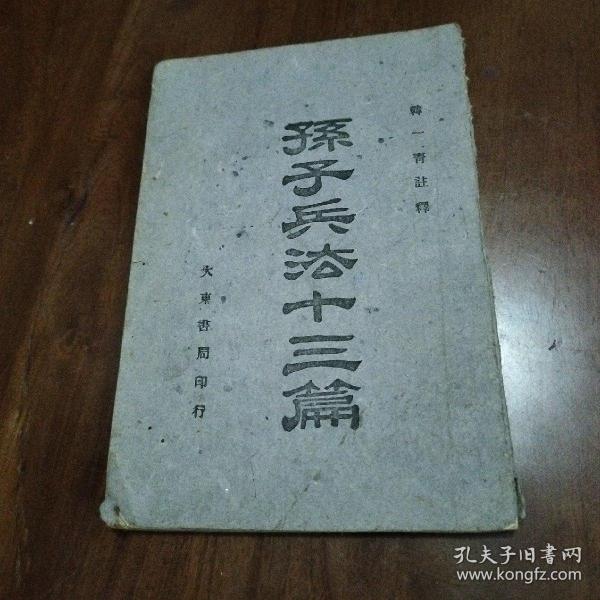 韓一青註釋
孫子兵法十三篇
大東書局印行
孔夫子旧書网
www.kongfz.com